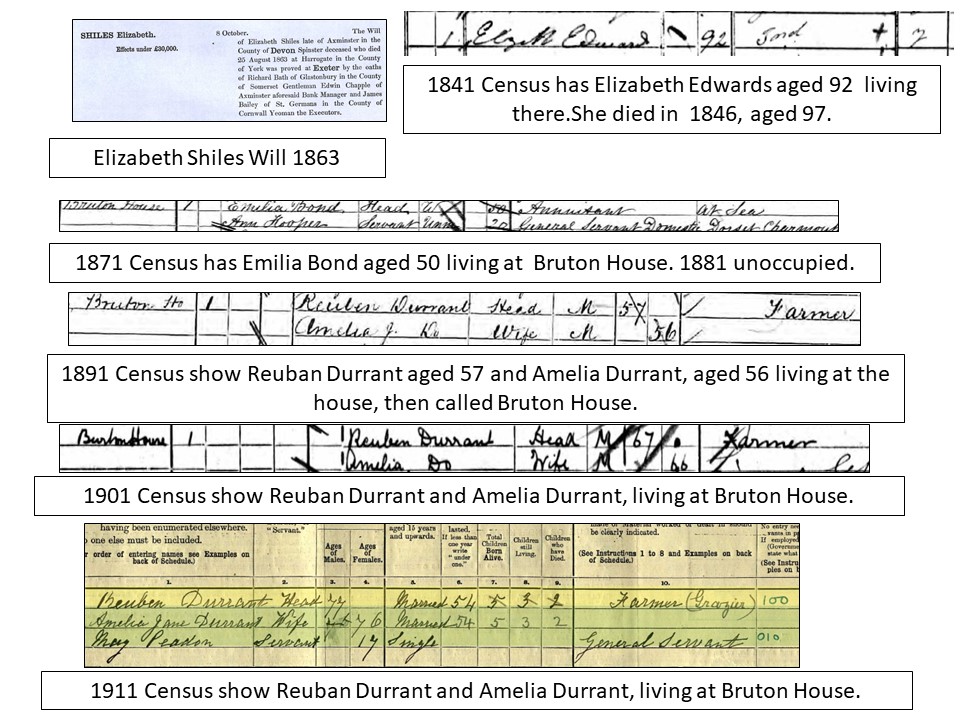 SHILES Elizabeth.
Effects under £30,000.
8 October. The Will
of Elizabeth Shiles late of Axminster in the
County of Devon Spinster deceased who died
25 August 1863 at Harrogate in the County
of York was proved at Exeter by the oaths
of Richard Bath of Glastonbury in the County
of Somerset Gentleman Edwin Chapple of
Axminster aforesaid Bank Manager and James
Bailey of St. Germans in the County of
Cornwall Yeoman the Executors.
1 Elizth Edwards 92 7
1841 Census has Elizabeth Edwards aged 92 living
there.She died in 1846, aged 97.
Elizabeth Shiles Will 1863
Bruton House 1 Emilia Bond Head Annuitant at Sea
Ann Hooper Servant 20 General Servant Domestic Dorset Charmouth
1871 Census has Emilia Bond aged 50 living at Bruton House. 1881 unoccupied.
Bruton Ho 1 Reuben Durrant Head M 57 Farmer
Amelia J. Do Wife M 56
1891 Census show Reuban Durrant aged 57 and Amelia Durrant, aged 56 living at the
house, then called Bruton House.
1 Reuben Durrant Head M 67 Farmer
Amelia Do Wife M 66
1901 Census show Reuban Durrant and Amelia Durrant, living at Bruton House.
having been enumerated elsewhere.
one else must be included.
r order of entering names see Examples on
back of Schedule.)
"Servant."
Ages
of
Males.
Ages
of
Females.
aged 15 years
and upwards.
lasted.
If less than
one year
write
"under
one."
Total
Children
Born
Alive.
Children
still
Living.
Children
who
have
Died.
be clearly indicated.
(See Instructions 1 to 8 and Examples on back
of Schedule.)
1. 2. 3. 4. 5. 6. 7. 8. 9. 10.
Reuben Durrant Head 77 Married 54 5 3 2 Farmer (Grazier) 100
Amelia Jane Durrant Wife 76 Married 54 5 3 2
Servant 17 Single General Servant 010
1911 Census show Reuban Durrant and Amelia Durrant, living at Bruton House.